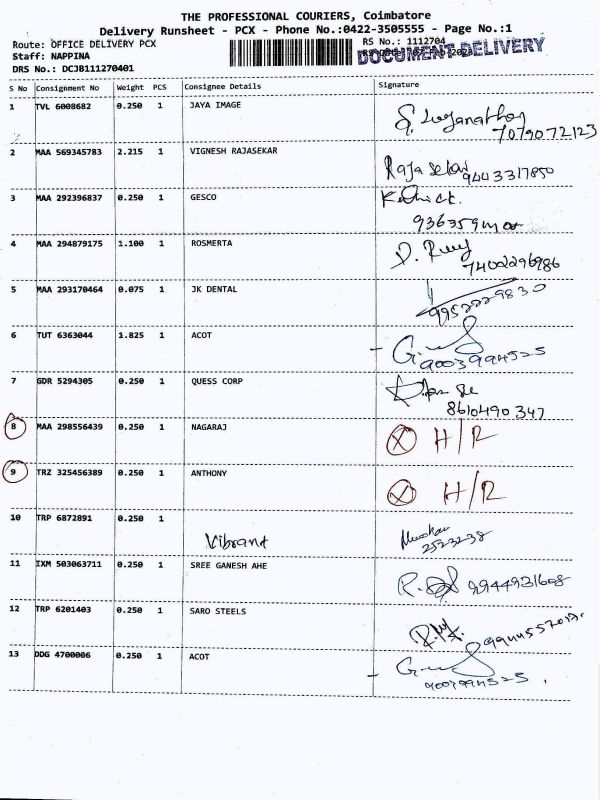 THE PROFESSIONAL COURIERS, Coimbatore
Delivery Runsheet - PCX - Phone No.:0422-3505555 - Page No.:1
Route: OFFICE DELIVERY PCX
RS No.: 1112704
Staff: NAPPINA
DOCUMENT DELIVERY
DRS No.: DCJB111270401
S No Consignment No Weight PCS Consignee Details Signature
1 TVL 6008682 0.250 1 JAYA IMAGE
7079072123
2 MAA 569345783 2.215 1 VIGNESH RAJASEKAR
Rajasekar 9443317850
3 MAA 292396837 0.250 1 GESCO
4 MAA 294879175 1.100 1 ROSMERTA
7402296986
5 MAA 293170464 0.075 1 JK DENTAL
9952229830
6 TUT 6363044 1.825 1 ACOT
9003994525
7 GDR 5294305 0.250 1 QUESS CORP
8610490347
8 MAA 298556439 0.250 1 NAGARAJ H/R
9 TRZ 325456389 0.250 1 ANTHONY H/R
10 TRP 6872891 0.250 1
Vibrant
2523238
11 IXM 503063711 0.250 1 SREE GANESH AHE
9944931608
12 TRP 6201403 0.250 1 SARO STEELS
13 DDG 4700006 0.250 1 ACOT